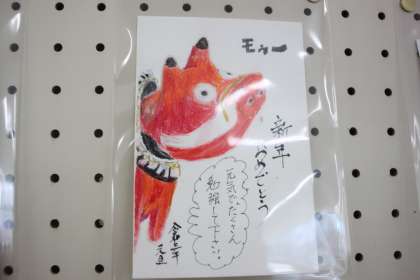 モゥー
新年
おめでとう
元気で、たくさん
勉強して下さい。
令和三年
元旦